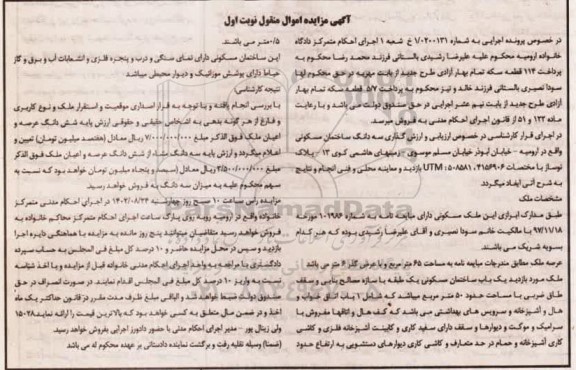 آگهی مزایده اموال منقول نوبت اول
در خصوص پرونده اجرایی به شماره ۰۲۰۰۱۳۱/۱ خ شعبه ۱ اجرای احکام متمرکز دادگاه
خانواده ارومیه محکوم علیه علیرضا رشیدی بالستانی فرزند محمد رضا محکوم به
پرداخت ۱۱۴ قطعه سکه تمام بهار آزادی طرح جدید از بابت مهریه در حق محکوم لها
سودا نصیری بالستانی فرزند خالد و نیز محکوم به پرداخت ۵/۷ قطعه سکه تمام بهار
آزادی طرح جدید از بابت نیم عشر اجرایی در حق صندوق دولت می باشد و با رعایت
ماده ۱۲۲ و ۵۱ از قانون اجرای احکام مدنی به فروش میرسد.
در اجرای قرار کارشناسی در خصوص ارزیابی و ارزش گذاری سه دانگ ساختمان مسکونی
واقع در ارومیه - خیابان ابوذر خیابان مسلم موسوی - میتهای هاشمی کوی ۱۳ - پلاک
نوساز با مختصات ۴۱۵۶۹۰۶ . ۵۰۸۵۸۱ : UTM بازدید و معاینه محلی و فنی انجام و نتایج
به شرح آتی ایفاد میگردد
مشخصات ملک
طبق مدارک ابرازی این ملک مسکونی دارای مبایعه نامه به شماره ۱۰۱۹۸۶ مورخه
۹۷/۱۱/۱۸ با مالکیت خانم سودا نصیری و آقای علیرضا رشیدی بوده که هر کدام
بسویه شریک می باشند.
عرصه ملک مطابق مندرجات مبایعه نامه به مساحت ۶۵ متر مربع و با عرض گذر ۶ متر می باشد
ملک مورد بازدید یک باب ساختمان مسکونی یک طبقه با سازه مصالح بنایی سقف
طاق ضربی با مساحت حدود ۵۰ متر مربع میباشد که شامل ۱ باب اتاق خواب و
هال و آشپزخانه و سرویس های بهداشتی می باشد که کف هال و اتاقها مفروش با
سرامیک و موکت و دیوارها و سقف دارای سفید کاری و کابینت آشپزخانه فلزی و کاشی
کاری آشپزخانه و حمام در حد متعارف و کاشی کاری دیوارهای دستشویی به ارتفاع حدود
۰/۵متر می باشند.
این ساختمان مسکونی دارای نمای سنگی و درب و پنجره فلزی و انشعابات آب و برق و گاز
حیاط دارای پوشش موزائیک و دیوار محیطی میباشد
نتیجه کارشناسی:
با بررسی انجام یافته و با توجه به قرار اصداری موقعیت و استقرار ملک و نوع کاربری
و فارغ از هر گونه بدهی به اشخاص حقیقی و حقوقی ارزش پایه شش دانگ عرصه و
اعیان ملک فوق الذکر مبلغ ۷/۰۰۰/۰۰۰/۰۰۰ ریال معادل (هفتصد میلیون تومان) تعیین و
اعلام میگردد و ارزش پایه سه دانگ مشاء از شش دانگ عرصه و اعیان ملک فوق الذکر
مبلغ ۳/۵۰۰/۰۰۰/۰۰۰ ریال معادل (سیصد و پنجاه میلیون تومان خواهد بود که نسبت به
سهم محکوم علیه به میزان سه دانگ به فروش خواهد رسید.
مزایده راس ساعت ۱۰ صبح روز چهارشنبه ۱۴۰۳/۰۸/۲۳ در اجرای احکام مدنی متمرکز
خانواده واقع در ارومیه روبه روی پارک ساعت اجرای احکام متمرکز محاکم خانواده به
فروش خواهد رسید متقاضیان میتوانند پنج روز مانده به مزایده با هماهنگی دایره اجرا
بازدید و سپس در محل مزایده حاضر و ۱۰ درصد کل مبلغ فی المجلس به حساب سپرده
دادگستری با مراجعه به واحد اجرای احکام مدنی خانواده قبل از مزایده و با اخذ شناسه
سپرده واریز ۱۰ درصد کل مبلغ فی المجلس اقدام نمایند. در صورت انصراف در حق
صندوق دولت ضبط خواهد شد و الباقی مبلغ ظرف مدت مقرر در قانون حداکثر یک ماه
اخذ و در ضمن مال متعلق به کسی خواهد بود که بالاترین قیمت را ارائه نماید ۱۵۰۲۸
ولی زینال پور - مدیر اجرای احکام مدنی با حضور دادورز اجرایی بفروش خواهد رسید.
(ضمنا) وسیله نقلیه رفت و برگشت نماینده دادستانی بر عهده محکوم له می باشد